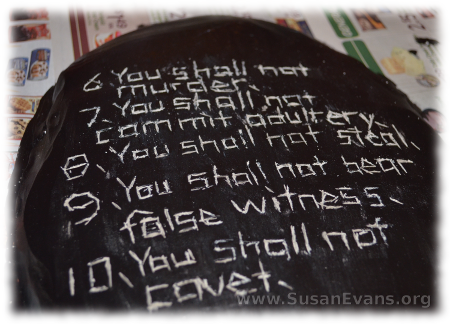 6. You shall not
murder.
7. You shall not
commit adultery.
8. You shall not steal.
9. You shall not bear
false witness.
10. You shall not
covet.
www.SusanEvans.org